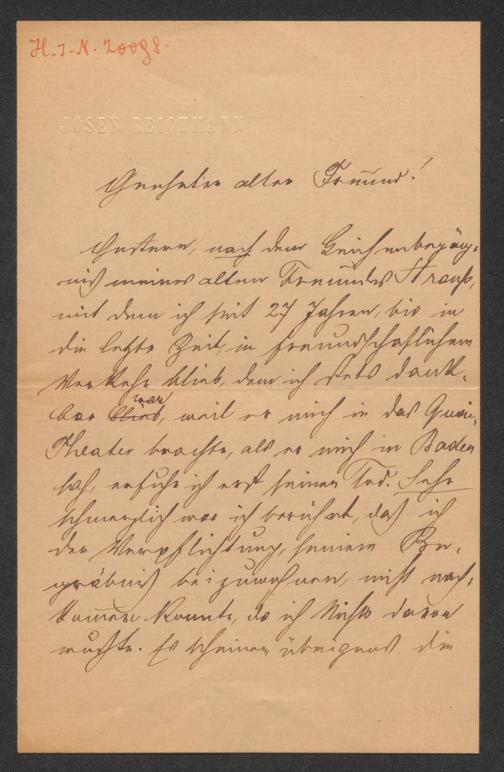 H.I.N. 20098.
JOSEF REICHMANN
Geehrter alter Freund!
Gestern, nach dem Leichenbegäng-
niß meines alten Freundes Strauß,
mit dem ich seit 27 Jahren, bis in
die letzte Zeit, in freundschaftlichem
Verkehr blieb, dem ich stets dank-
bar blieb, war weil er mich in das
Theater brachte, als er mich in Baden
sah, erfuhr ich erst seinen Tod. Sehr
schmerzlich war ich berührt, daß ich
der Verpflichtung, seinem Be-
gräbniß beizuwohnen, nicht nach-
kommen konnte, da ich Nichts davon
wußte. Es scheinen übrigens die